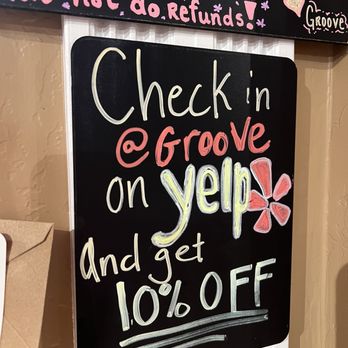 not do Refunds!
Groove
Check in
@GROOVE
on yelp
and get
10% OFF